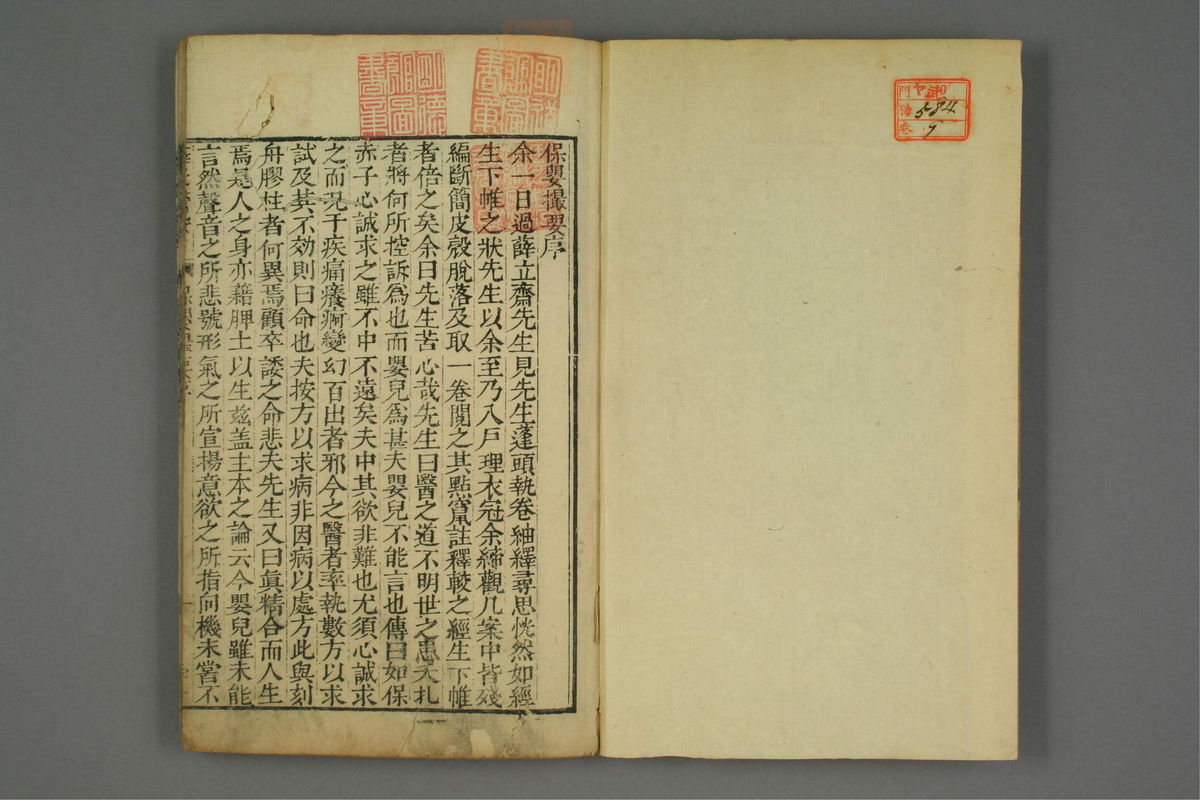 保嬰撮要序
余一日過薛立齋先生見先生蓬頭執卷紬繹尋思恍然如經
生下帷之狀先生以余至乃入戶理衣冠余締觀几案中皆殘
編斷簡皮殼脫落及取一卷閱之其點竄註釋較之經生下帷
者倍之矣余曰先生苦心哉先生曰醫之道不明世之患夭札
者將何所控訴爲也而嬰兒爲甚夫嬰兒不能言也傳曰如保
赤子心誠求之雖不中不遠矣夫中其欲非難也尤須心誠求
之而現于疾痛癢痾變幻百出者邪今之醫者率執數方以求
試及其不効則曰命也夫按方以求病非因病以處方此與刻
舟膠柱者何異焉顧卒諉之命悲夫先生又曰眞精合而人生
焉是人之身亦藉脾土以生茲盖主本之論云今嬰兒雖未能
言然聲音之所悲號形氣之所宣揚意欲之所指向機未嘗不
門
584
卷
7